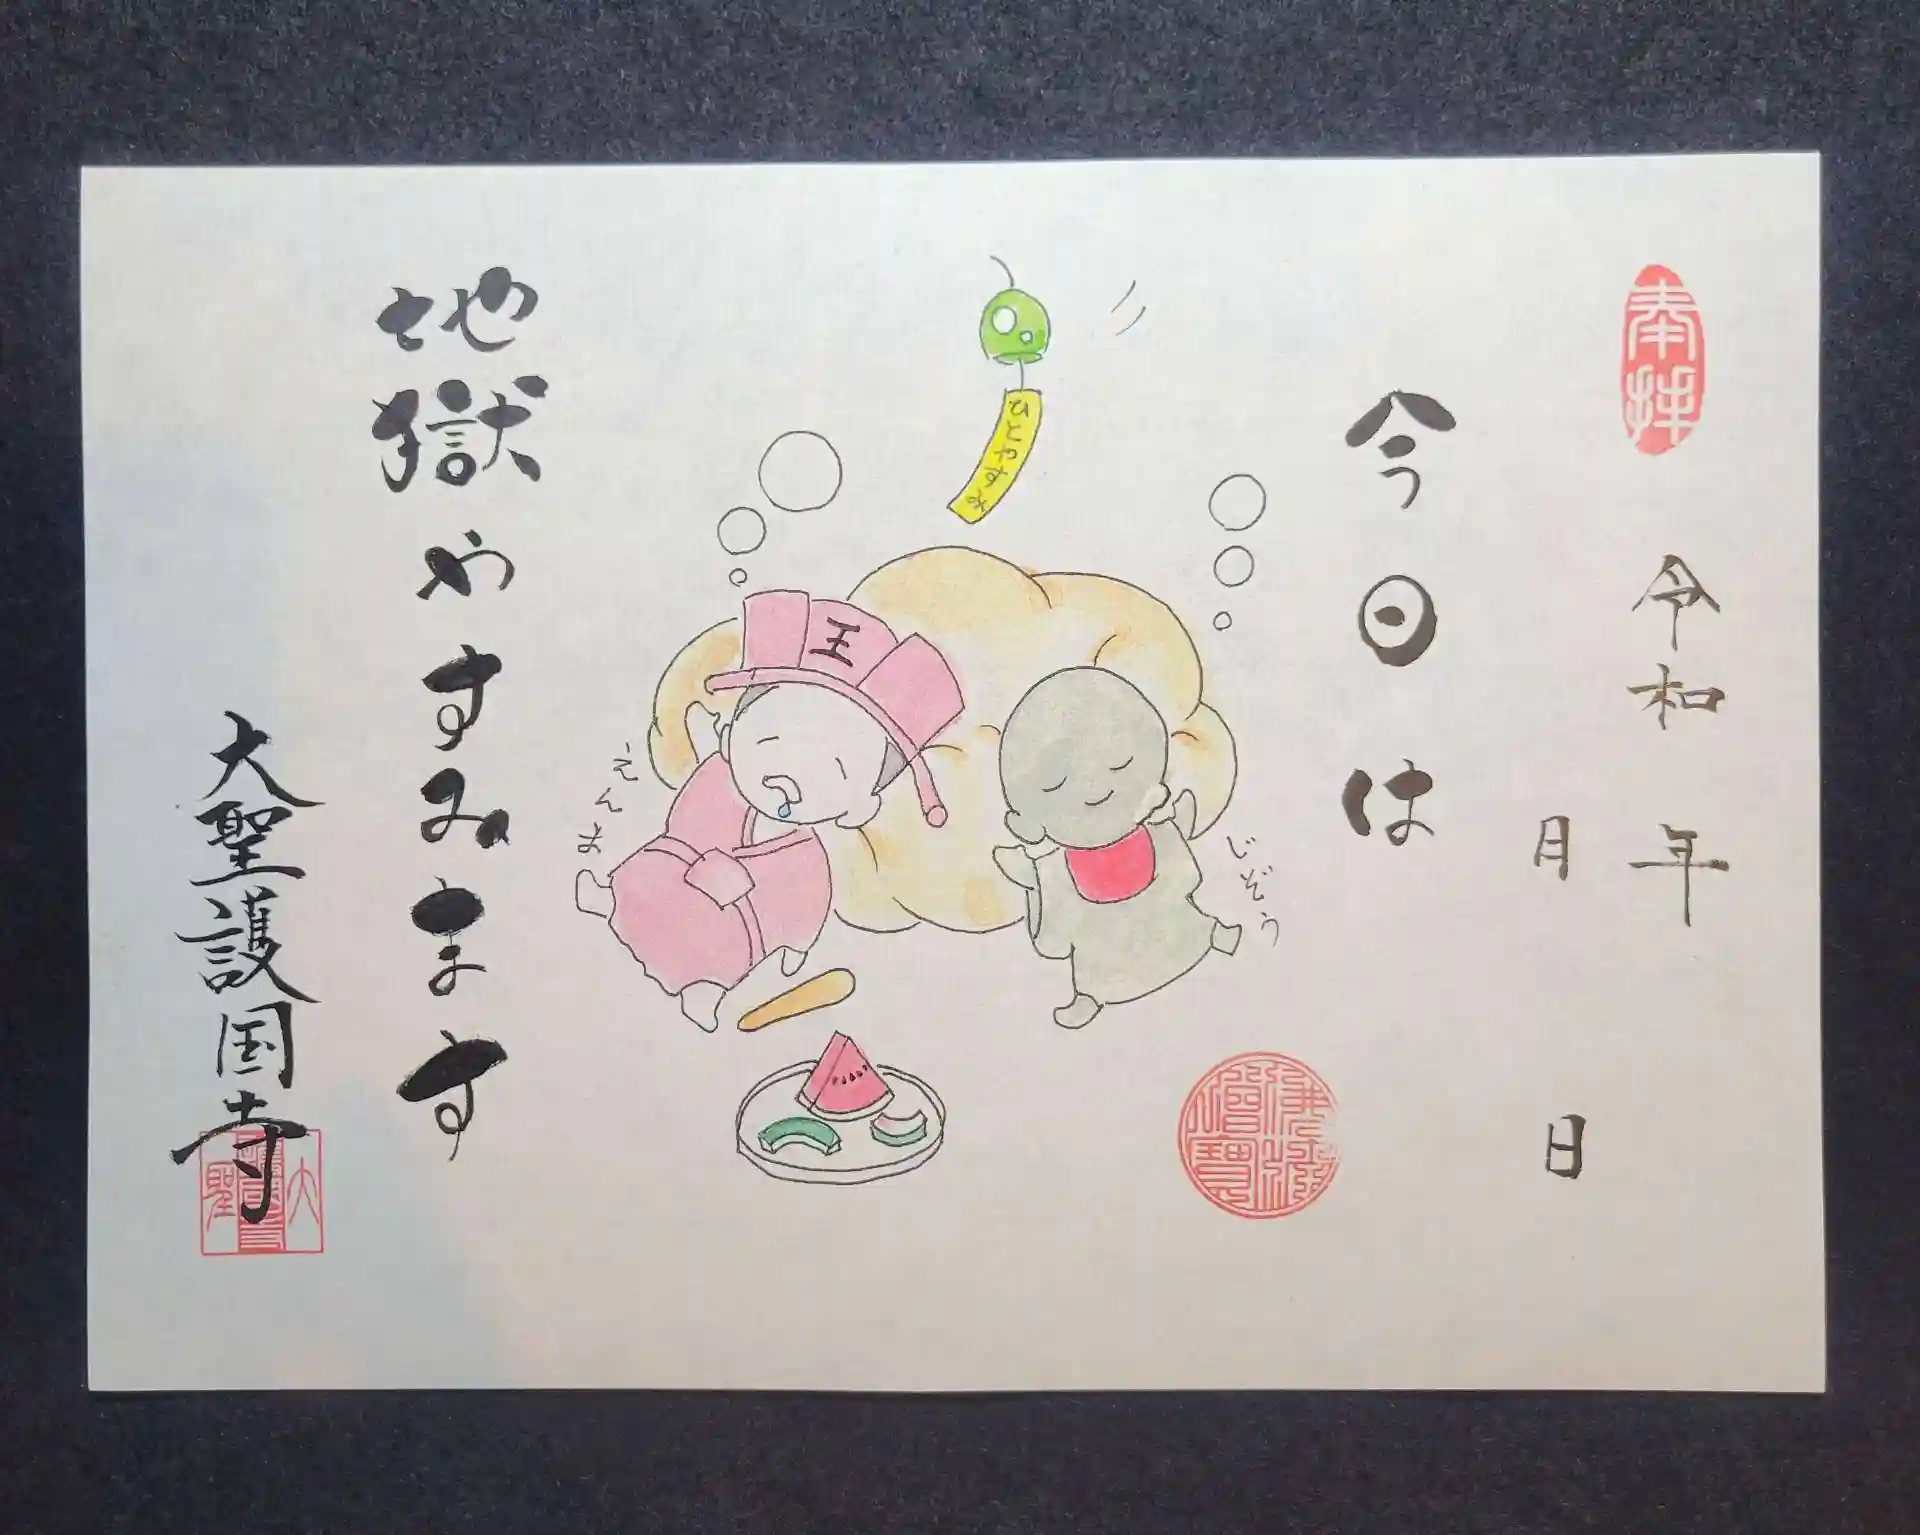 奉拝
令和 年
月 日
今日は
ひとやすみ
王
じぞう
えんま
佛法僧寶
地獄やすみます
大聖護国寺